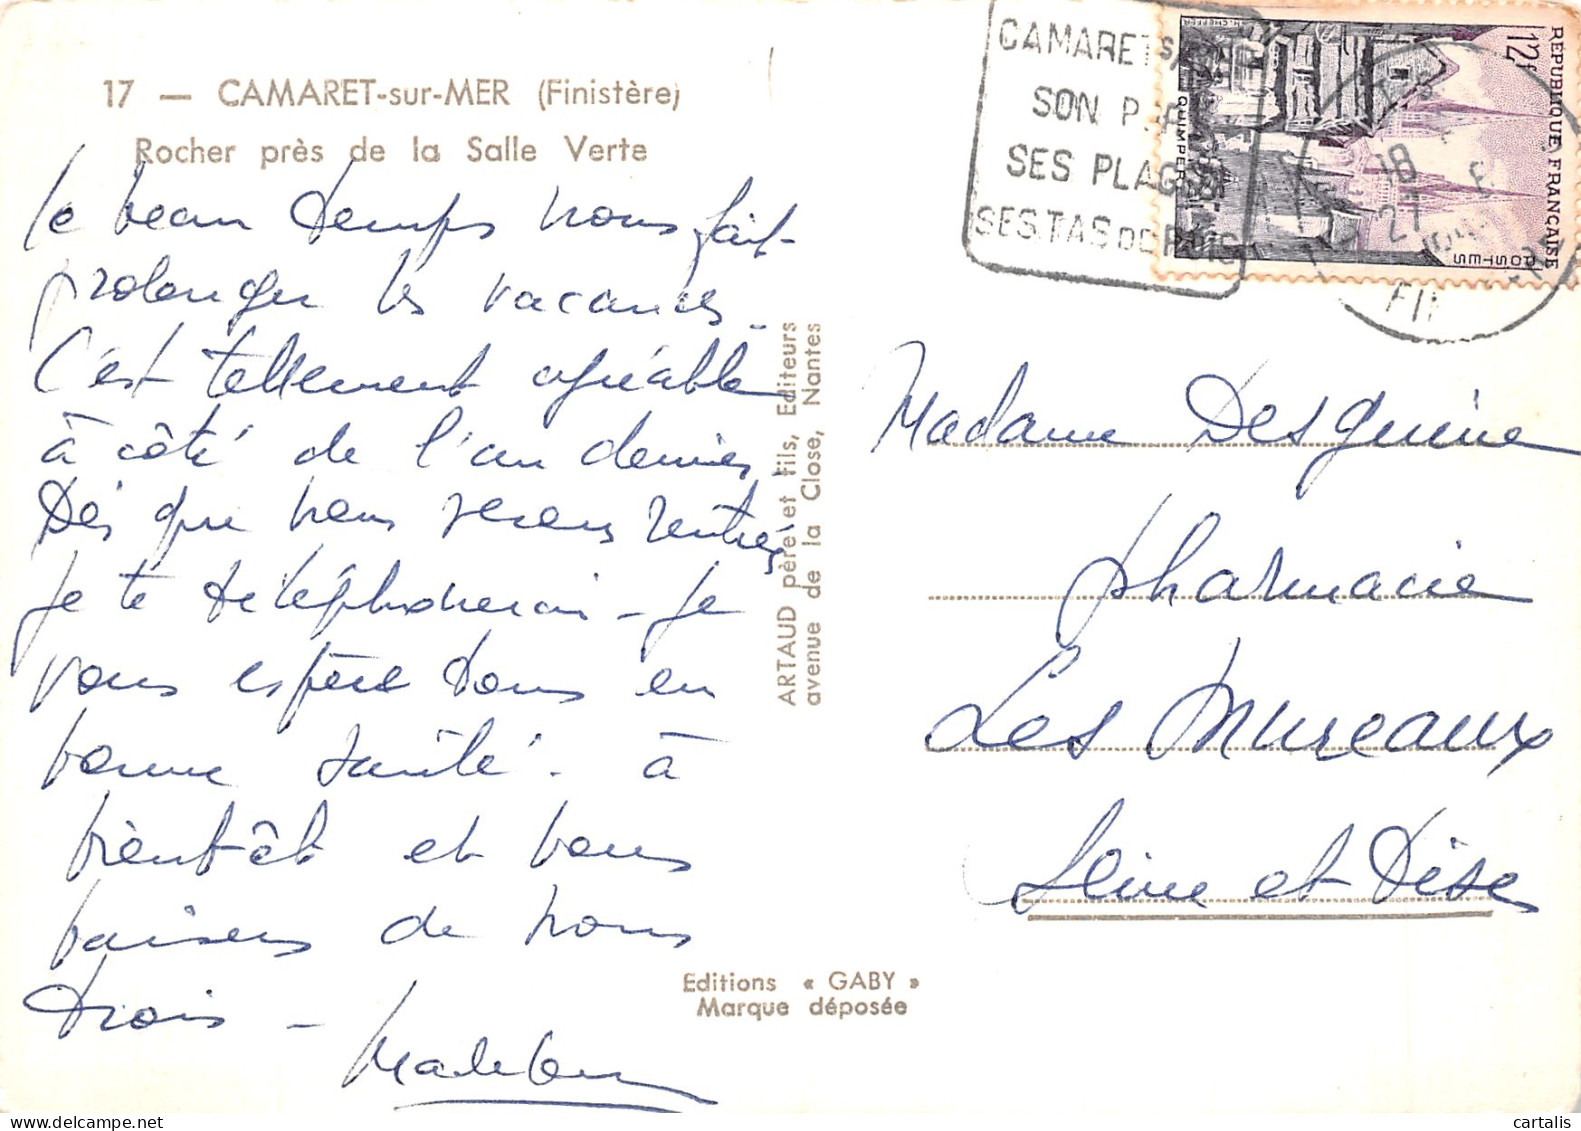 17 — CAMARET-sur-MER (Finistère)
Rocher près de la Salle Verte
Le beau temps nous fait
prolonger les vacances.
C'est tellement agréable
à côté de l'an dernier.
Dès que nous serons rentrés
je te téléphonerai – je
vous espère tous en
bonne santé. à
bientôt et bons
baisers de nous
trois –
ARTAUD père et fils, Editeurs
avenue de la Close, Nantes
Editions « GABY »
Marque déposée
CAMARET s/
SON P
SES PLAG
SES TAS DE POIS
RÉPUBLIQUE FRANÇAISE
12f
POSTES
QUIMPER
H. CHEFFER
18
27
FIN
Madame
Pharmacie
Les Mureaux
Seine et Oise
cartalis